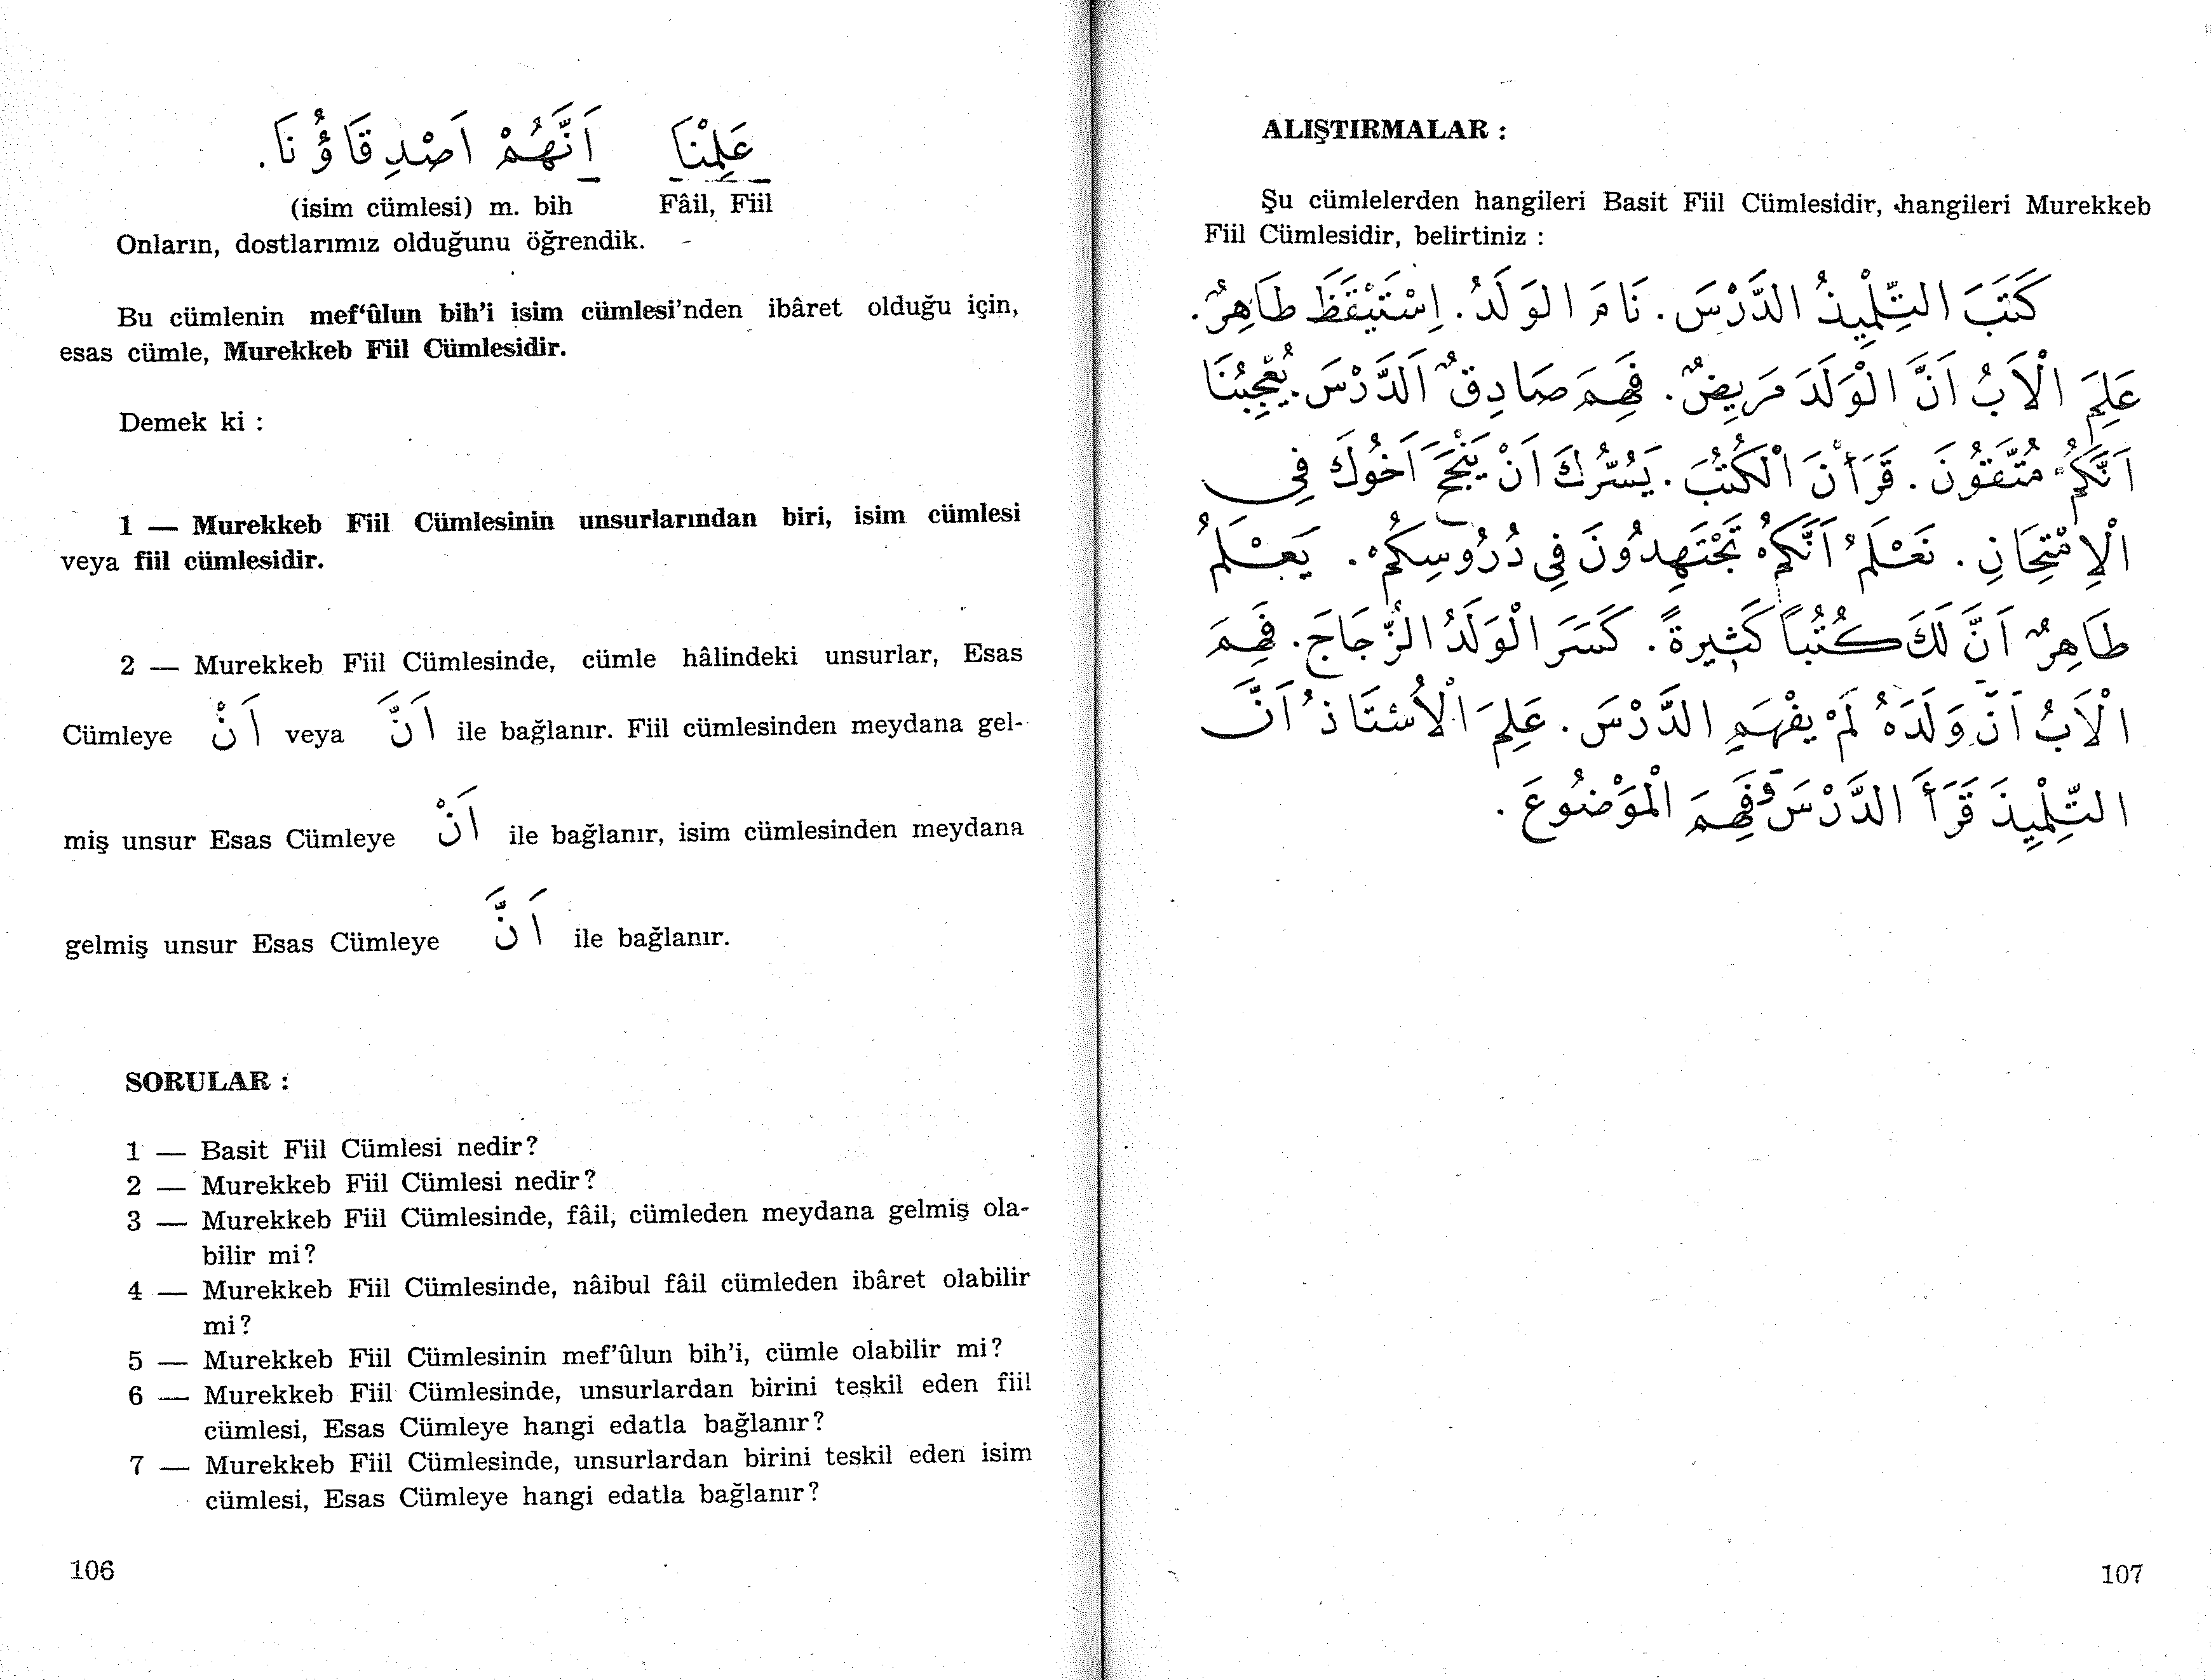 عَلِمْنَا اَنَّهُمْ اَصْدِقَاؤُنَا.
(isim cümlesi) m. bih Fâil, Fiil
Onların, dostlarımız olduğunu öğrendik.
Bu cümlenin mef‘ûlun bih’i isim cümlesi’nden ibâret olduğu için,
esas cümle, Murekkeb Fiil Cümlesidir.
Demek ki :
1 — Murekkeb Fiil Cümlesinin unsurlarından biri, isim cümlesi
veya fiil cümlesidir.
2 — Murekkeb Fiil Cümlesinde, cümle hâlindeki unsurlar, Esas
Cümleye اَنْ veya اَنَّ ile bağlanır. Fiil cümlesinden meydana gel-
miş unsur Esas Cümleye اَنْ ile bağlanır, isim cümlesinden meydana
gelmiş unsur Esas Cümleye اَنَّ ile bağlanır.
SORULAR :
1 — Basit Fiil Cümlesi nedir?
2 — Murekkeb Fiil Cümlesi nedir?
3 — Murekkeb Fiil Cümlesinde, fâil, cümleden meydana gelmiş ola-
bilir mi?
4 — Murekkeb Fiil Cümlesinde, nâibul fâil cümleden ibâret olabilir
mi?
5 — Murekkeb Fiil Cümlesinin mef’ûlun bih’i, cümle olabilir mi?
6 — Murekkeb Fiil Cümlesinde, unsurlardan birini teşkil eden fiil
cümlesi, Esas Cümleye hangi edatla bağlanır?
7 — Murekkeb Fiil Cümlesinde, unsurlardan birini teşkil eden isim
cümlesi, Esas Cümleye hangi edatla bağlanır?
106
ALIŞTIRMALAR :
Şu cümlelerden hangileri Basit Fiil Cümlesidir, hangileri Murekkeb
Fiil Cümlesidir, belirtiniz :
كَتَبَ التِّلْمِيذُ الدَّرْسَ. نَامَ الوَلَدُ. اِسْتَيْقَظَ طَاهِرٌ.
عَلِمَ الْاَبُ اَنَّ الْوَلَدَ مَرِيضٌ. فَهِمَ صَادِقٌ اَلدَّرْسَ. يُعْجِبُنَا
اَنَّكُمْ مُتَّفِقُونَ. قَرَأْنَ الْكُتُبَ. يَسُرُّكَ اَنْ يَنْجَحَ اَخُوكَ فِي
الْاِمْتِحَانِ. نَعْلَمُ اَنَّكُمْ تَجْتَهِدُونَ فِي دُرُوسِكُمْ. يَعْلَمُ
طَاهِرٌ اَنَّ لَكَ كُتُبًا كَثِيرَةً. كَسَرَ الْوَلَدُ الزُّجَاجَ. فَهِمَ
الْاَبُ اَنَّ وَلَدَهُ لَمْ يَفْهَمِ الدَّرْسَ. عَلِمَ الْاُسْتَاذُ اَنَّ
التِّلْمِيذَ قَرَأَ الدَّرْسَ وَفَهِمَ الْمَوْضُوعَ.
107